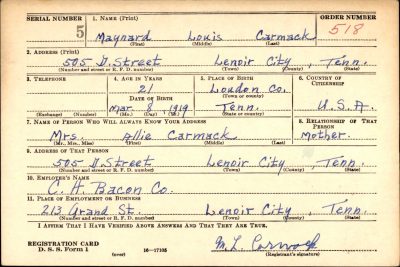 SERIAL NUMBER 1. NAME (Print) ORDER NUMBER
5 Maynard Louis Carmack 518
(First) (Middle) (Last)
2. ADDRESS (Print)
505 D. Street Lenoir City, Tenn.
(Number and street or R. F. D. number) (Town) (County) (State)
3. TELEPHONE 4. AGE IN YEARS 5. PLACE OF BIRTH 6. COUNTRY OF CITIZENSHIP
21 Loudon Co.
DATE OF BIRTH (Town or county)
Mar. 8 1919 Tenn. U.S.A.
(Exchange) (Number) (Mo.) (Day) (Yr.) (State or country)
7. NAME OF PERSON WHO WILL ALWAYS KNOW YOUR ADDRESS 8. RELATIONSHIP OF THAT PERSON
Mrs. Allie Carmack Mother.
(Mr., Mrs., Miss) (First) (Middle) (Last)
9. ADDRESS OF THAT PERSON
505 D. Street Lenoir City, Tenn.
(Number and street or R. F. D. number) (Town) (County) (State)
10. EMPLOYER'S NAME
C. H. Bacon Co.
11. PLACE OF EMPLOYMENT OR BUSINESS
213 Grand St. Lenoir City, Tenn.
(Number and street or R. F. D. number) (Town) (County) (State)
I AFFIRM THAT I HAVE VERIFIED ABOVE ANSWERS AND THAT THEY ARE TRUE.
REGISTRATION CARD
D. S. S. Form 1 16—17105 M. L. Carmack
(over) (Registrant's signature)